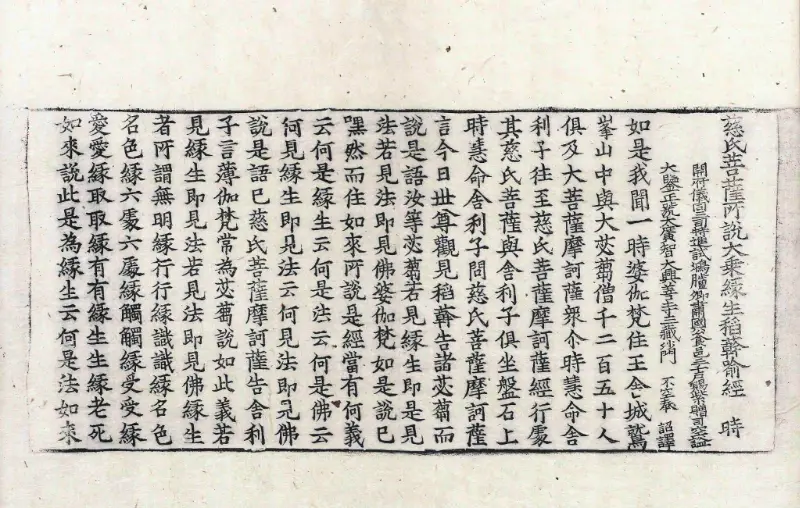 慈氏菩薩所說大乘緣生稻𦼮喻經 時
開府儀同三司特進試鴻臚卿肅國公食邑三千戶賜紫贈司空謚
大鑒正號大廣智大興善寺三藏沙門 不空奉 詔譯
如是我聞一時婆伽梵住王舍城鷲
峯山中與大苾蒭僧千二百五十人
俱及大菩薩摩訶薩眾尒時慧命舍
利子往至慈氏菩薩摩訶薩經行處
其慈氏菩薩與舍利子俱坐盤石上
時慧命舍利子問慈氏菩薩摩訶薩
言今日世尊觀見稻𦼮告諸苾蒭而
說是語汝等苾蒭若見緣生即是見
法若見法即見佛婆伽梵如是說已
嘿然而住如來所說是經當有何義
云何是緣生云何是法云何是佛云
何見緣生即見法云何見法即見佛
說是語已慈氏菩薩摩訶薩告舍利
子言薄伽梵常為苾蒭說如此義若
見緣生即見法若見法即見佛緣生
者所謂無明緣行行緣識識緣名色
名色緣六處六處緣觸觸緣受受緣
愛愛緣取取緣有有緣生生緣老死
如來說此是為緣生云何是法如來